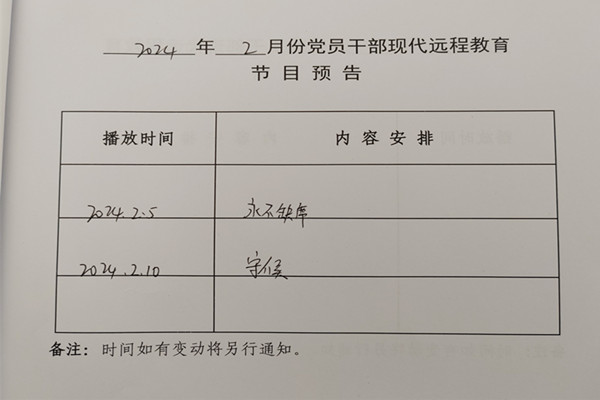 2024 年 2 月份党员干部现代远程教育
节目预告
播放时间 内容安排
2024.2.5 永不缺席
2024.2.10 守候
备注：时间如有变动将另行通知。